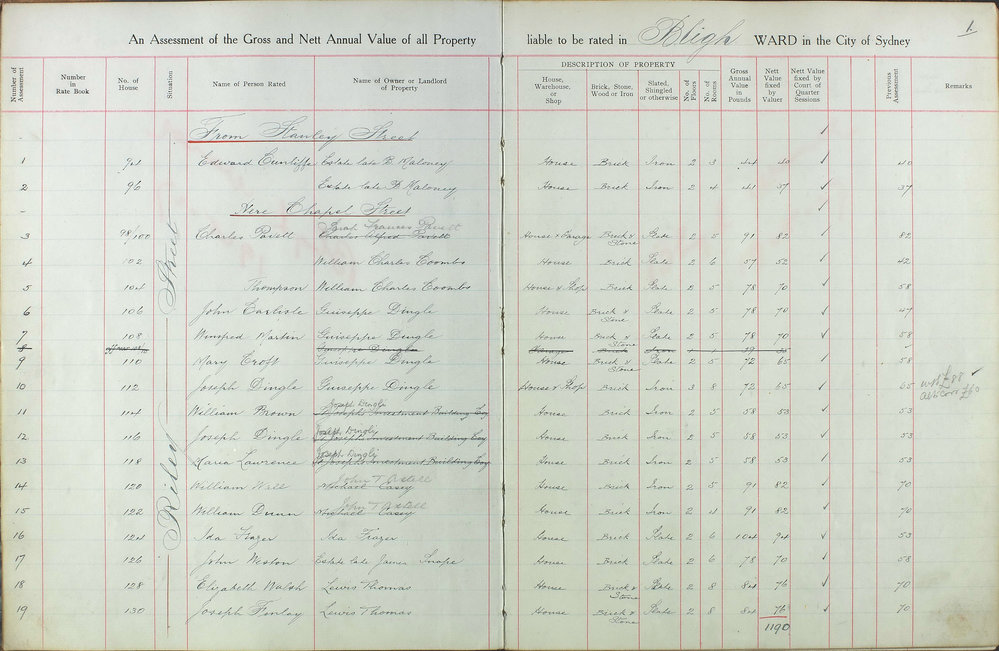 An Assessment of the Gross and Nett Annual Value of all Property liable to be rated in Bligh WARD in the City of Sydney
1.
Number of Assessment | Number in Rate Book | No. of House | Situation | Name of Person Rated | Name of Owner or Landlord of Property | DESCRIPTION OF PROPERTY | House, Warehouse, or Shop | Brick, Stone, Wood or Iron | Slated, Shingled or otherwise | No. of Floors | No. of Rooms | Gross Annual Value in Pounds | Nett Value fixed by Valuer | Nett Value fixed by Court of Quarter Sessions | Previous Assessment | Remarks
Riley Street
From Stanley Street ✓
1 94 Edward Cunliffe Estate late P. Maloney House Brick Iron 2 3 44 40 ✓ 40
2 96 Estate late P. Maloney House Brick Iron 2 4 41 37 ✓ 37
Here Chapel Street ✓
Sarah Frances Pavell
3 98/100 Charles Pavell Charles Alfred Pavell House & Garage Brick & Stone Slate 2 5 91 82 ✓ 82
4 102 William Charles Coombs House Brick Slate 2 6 57 52 ✓ 42
5 104 Thompson William Charles Coombs House & Shop Brick Slate 2 5 78 70 ✓ 58
6 106 John Carlisle Guiseppe Dingle House Brick & Stone Slate 2 5 78 70 ✓ 47
7 108 Winifred Martin Guiseppe Dingle House Brick & Stone Slate 2 5 78 70 ✓ 58
8 Guiseppe Dingle Brick Iron 1 1
9 110 Mary Croft Guiseppe Dingle House Brick & Stone Slate 2 5 72 65 ✓ 58
10 112 Joseph Dingle Guiseppe Dingle House & Shop Brick Iron 3 8 72 65 ✓ 65
Joseph Dingle
11 114 William Brown St Joseph's Investment Building Coy House Brick Iron 2 5 58 53 ✓ 53
Joseph Dingle
12 116 Joseph Dingle St Joseph's Investment Building Coy House Brick Iron 2 5 58 53 ✓ 53
Joseph Dingle
13 118 Maria Lawrence St Joseph's Investment Building Coy House Brick Iron 2 5 58 53 ✓ 53
John T Astell
14 120 William Will Michael Casey House Brick Iron 2 5 91 82 ✓ 70
John T Astell
15 122 William Dunn Michael Casey House Brick Iron 2 4 91 82 ✓ 70
16 124 Ida Frazer Ida Frazer House Brick Slate 2 6 104 94 ✓ 53
17 126 John Weston Estate late James Snape House Brick Slate 2 6 78 70 ✓ 58
18 128 Elizabeth Walsh Lewis Thomas House Brick & Stone Slate 2 8 84 76 ✓ 70
19 130 Joseph Finlay Lewis Thomas House Brick & Stone Slate 2 8 84 76 ✓ 70
1190